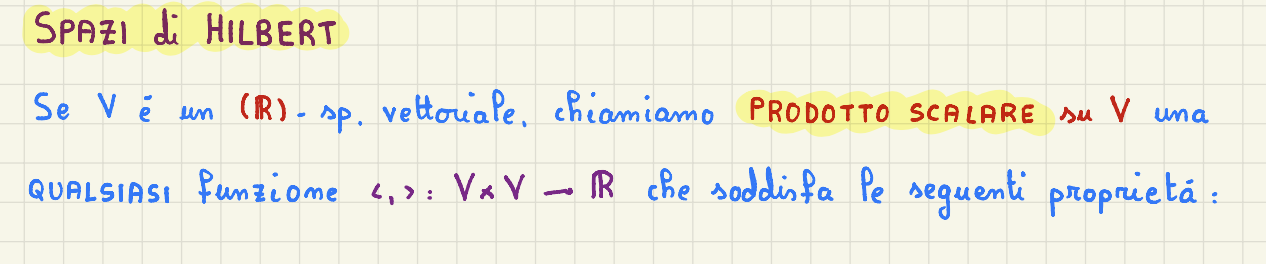 SPAZI di HILBERT
Se V é un (ℝ)- sp. vettoriale, chiamiamo PRODOTTO SCALARE su V una
QUALSIASI funzione <,>: V×V → ℝ che soddisfa le seguenti proprietá: